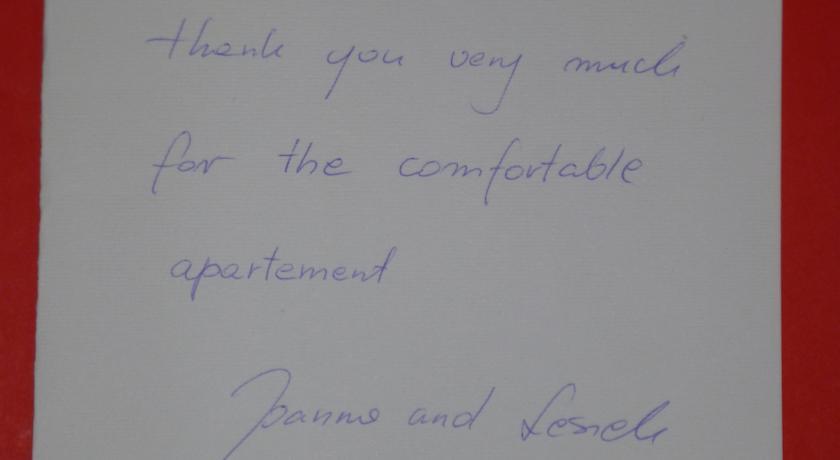 thank you very much
for the comfortable
apartement
Joanna and